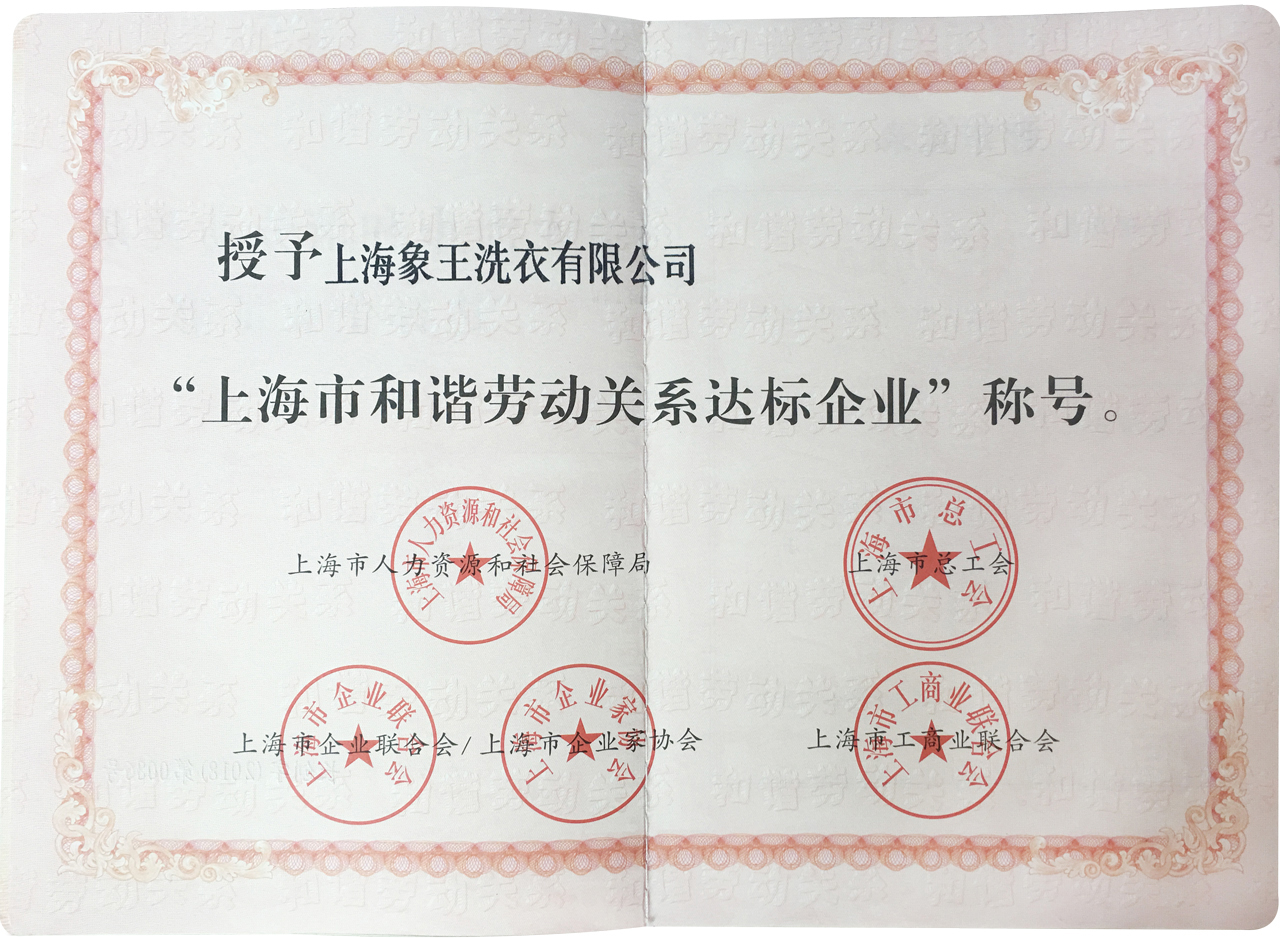 授予上海象王洗衣有限公司
“上海市和谐劳动关系达标企业”称号。
上海市人力资源和社会保障局
上海市人力资源和社会保障局
上海市总工会
上海市总工会
上海市企业联合会/上海市企业家协会
上海市企业联合会
上海市企业家协会
上海市工商业联合会
上海市工商业联合会
和谐劳动关系